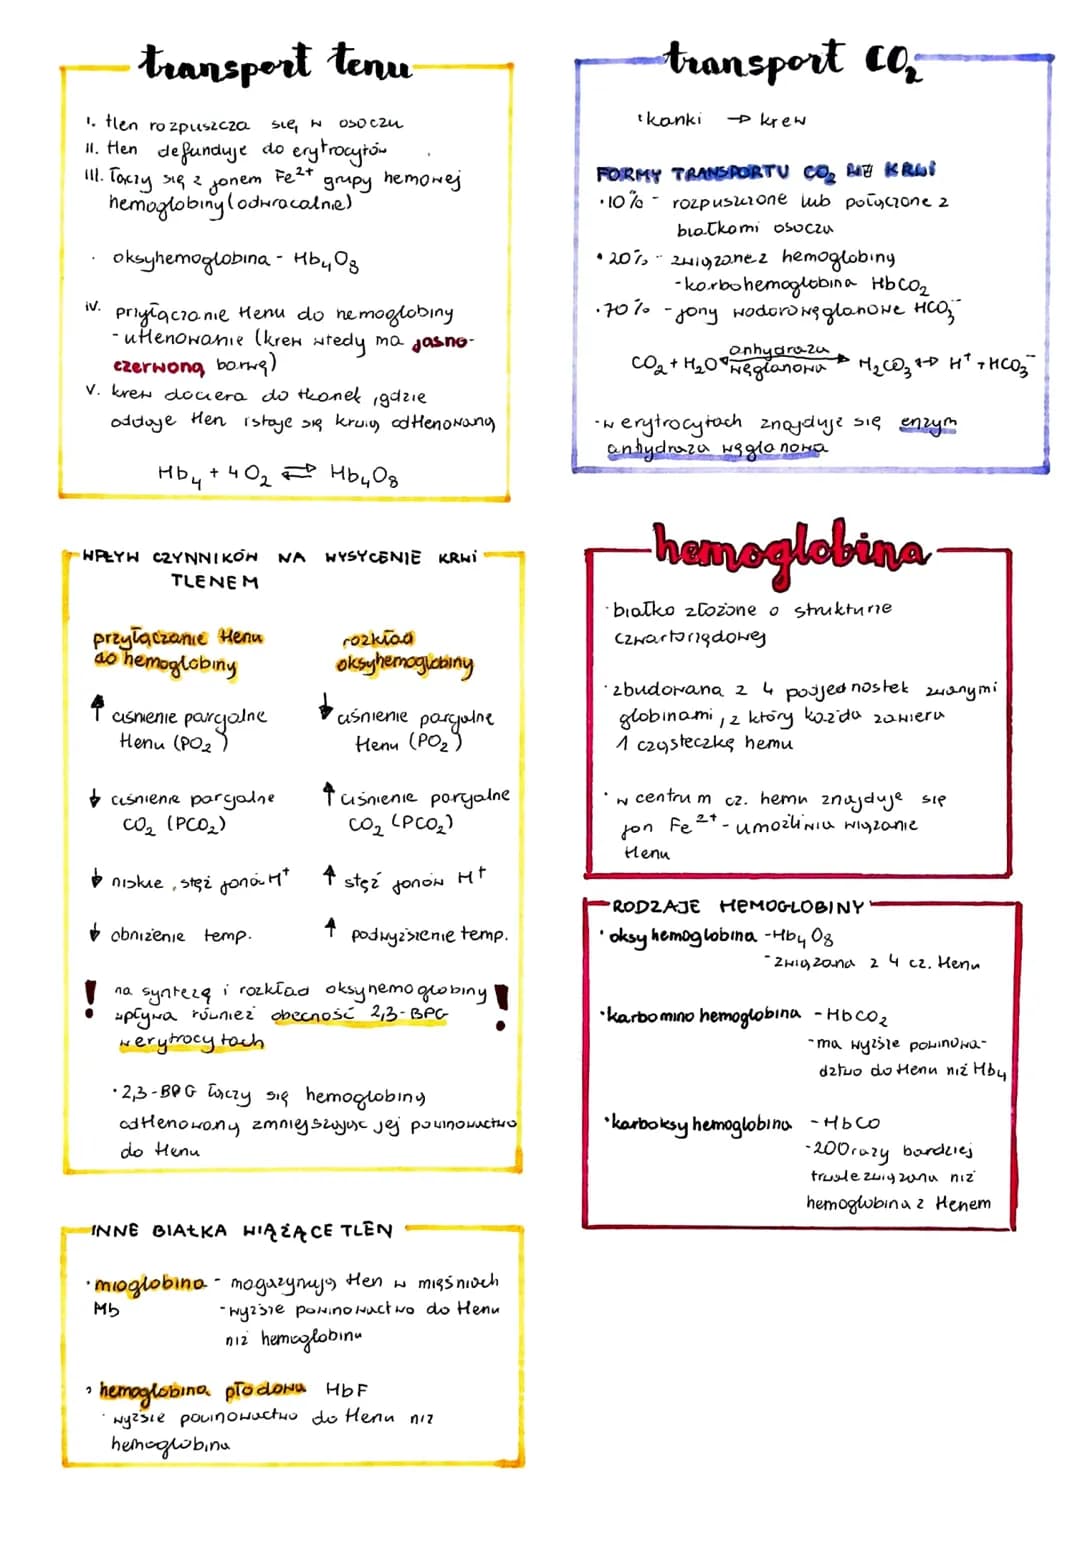 transport tenu
I. tlen rozpuszcza się w osoczu
II. tlen defunduje do erytrocytów
III. Łączy się z jonem Fe²⁺ grupy hemowej
hemoglobiny (odwracalnie)
· oksyhemoglobina - Hb₄O₈
IV. przyłączanie tlenu do hemoglobiny
- utlenowanie (krew wtedy ma jasno-
czerwoną barwę)
V. krew dociera do tkanek, gdzie
oddaje tlen i staje się krwią odtlenowaną
Hb₄ + 4O₂ ⇌ Hb₄O₈
transport CO₂
tkanki → krew
FORMY TRANSPORTU CO₂ WE KRWI
· 10% - rozpuszczone lub połączone z
białkami osocza
· 20% - związane z hemoglobiną
- karbohemoglobina HbCO₂
· 70% - jony wodorowęglanowe HCO₃⁻
CO₂ + H₂O anhydraza węglanowa H₂CO₃ ↔ H⁺ + HCO₃⁻
· w erytrocytach znajduje się enzym
anhydraza węglanowa
WPŁYW CZYNNIKÓW NA WYSYCENIE KRWI
TLENEM
przyłączanie tlenu
do hemoglobiny
↑ ciśnienie parcjalne
tlenu (PO₂)
↓ ciśnienie parcjalne
CO₂ (PCO₂)
↓ niskie stęż jonów H⁺
↓ obniżenie temp.
rozkład
oksyhemoglobiny
↓ ciśnienie parcjalne
tlenu (PO₂)
↑ ciśnienie parcjalne
CO₂ (PCO₂)
↑ stęż jonów H⁺
↑ podwyższenie temp.
! na syntezę i rozkład oksyhemoglobiny !
wpływa również obecność 2,3-BPG
w erytrocytach
· 2,3-BPG łączy się hemoglobiną
odtlenowaną zmniejszając jej powinowactwo
do tlenu
hemoglobina
· białko złożone o strukturze
czwartorzędowej
· zbudowana z 4 podjednostek zwanymi
globinami, z który każda zawiera
1 cząsteczkę hemu
· w centrum cz. hemu znajduje się
jon Fe²⁺ - umożliwia wiązanie
tlenu
RODZAJE HEMOGLOBINY
· oksyhemoglobina - Hb₄O₈
- związana z 4 cz. tlenu
· karbominohemoglobina - HbCO₂
- ma wyższe powinowa-
dztwo do tlenu niż Hb₄
· karboksyhemoglobina - HbCO
- 200 razy bardziej
trwale związana niż
hemoglobina z tlenem
INNE BIAŁKA WIĄŻĄCE TLEN
· mioglobina - magazynują tlen w mięśniach
Mb - wyższe powinowactwo do tlenu
niż hemoglobina
· hemoglobina płodowa HbF
· wyższe powinowactwo do tlenu niż
hemoglobina